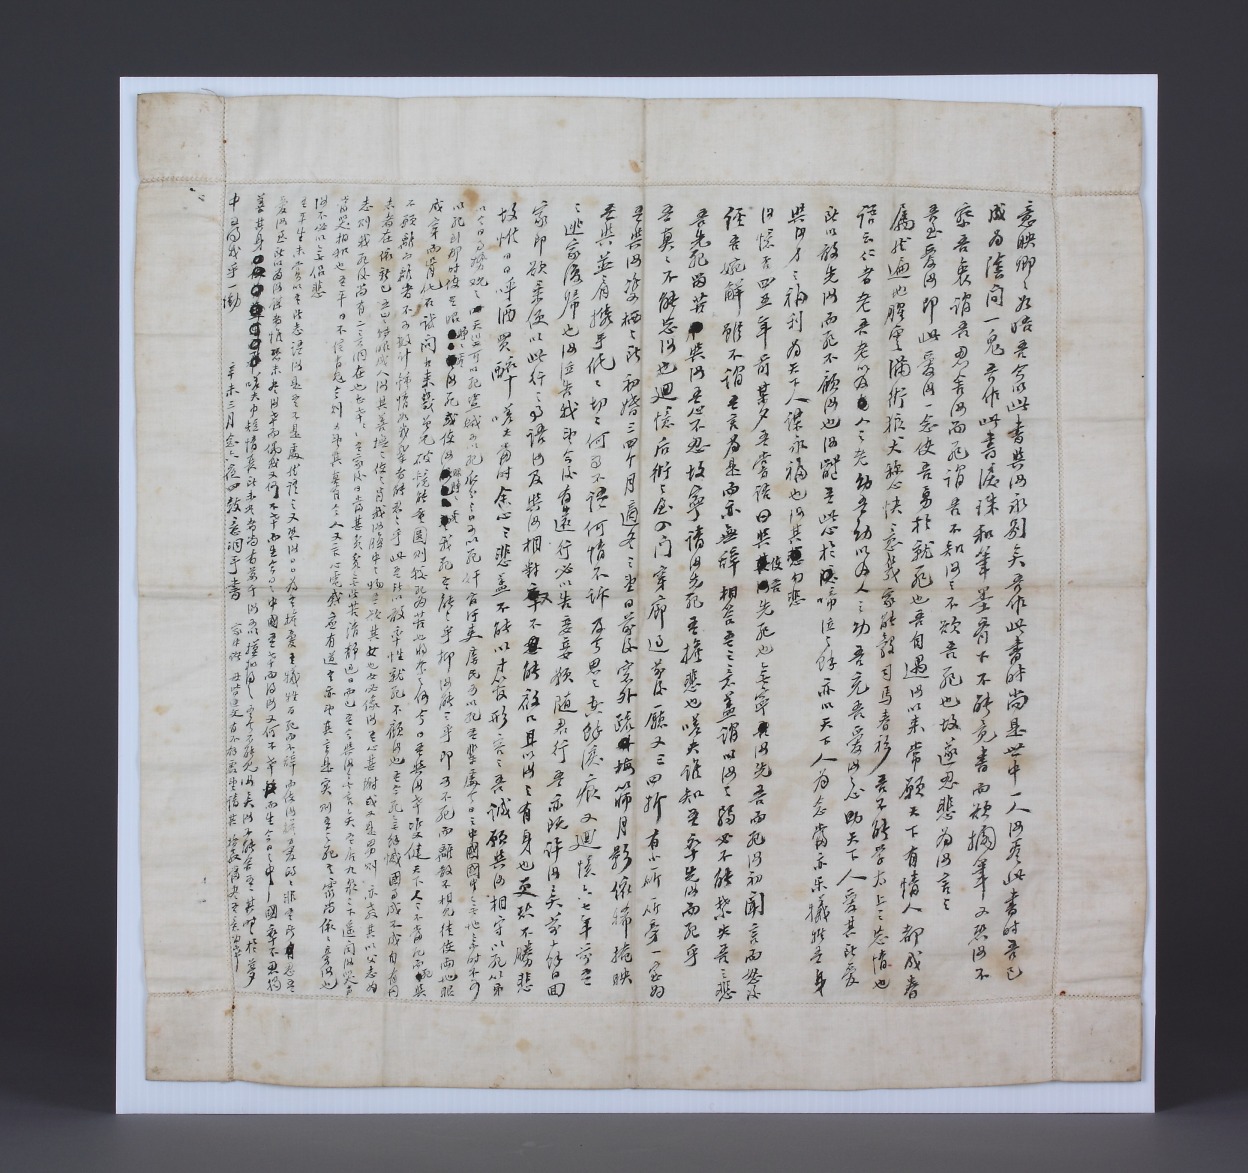 意映卿卿如晤吾今以此書與汝永別矣吾作此書時尚是世中一人汝看此書時吾已
成為陰間一鬼吾作此書淚珠和筆墨齊下不能竟書而欲擱筆又恐汝不
察吾衷謂吾忍舍汝而死謂吾不知汝之不欲吾死也故遂忍悲為汝言之
吾至愛汝即此愛汝一念使吾勇於就死也吾自遇汝以來常願天下有情人都成眷
屬然遍地腥雲滿街狼犬稱心快意幾家能彀司馬春衫吾不能學太上之忘情也
語云仁者老吾老以及人之老幼吾幼以及人之幼吾充吾愛汝之心助天下人愛其所愛
所以敢先汝而死不顧汝也汝體吾此心於啼泣之餘亦以天下人為念當亦樂犧牲吾身
與汝身之福利為天下人謀永福也汝其勿悲
汝憶否四五年前某夕吾嘗語曰與使吾先死也無寧汝先吾而死汝初聞言而怒後
經吾婉解雖不謂吾言為是而亦無辭相答吾之意蓋謂以汝之弱必不能禁失吾之悲
吾先死留苦與汝吾心不忍故寧請汝先死吾擔悲也嗟夫誰知吾卒先汝而死乎
吾真真不能忘汝也迴憶后街之屋入門穿廊過前後廳又三四折有小廳廳旁一室為
吾與汝雙棲之所初婚三四個月適冬之望日前後窗外疏梅篩月影依稀掩映
吾與並肩攜手低低切切何事不語何情不訴及今思之空餘淚痕又迴憶六七年前吾
之逃家復歸也汝泣告我望今後有遠行必以告妾妾願隨君行吾亦既許汝矣前十餘日回
家即欲乘便以此行之事語汝及與汝相對又不能啟口且以汝之有身也更恐不勝悲
故惟日日呼酒買醉嗟夫當時余心之悲蓋不能以寸管形容之吾誠願與汝相守以死第
以今日事勢觀之天災可以死盜賊可以死瓜分之日可以死奸官污吏虐民可以死吾輩處今日之中國國中無地無時不可
以死到那時使吾眼睜睜看汝死或使汝眼睜睜看我死吾能之乎抑汝能之乎即可不死而離散不相見徒使兩地眼
成穿而骨化石試問古來幾曾見破鏡能重圓則較死為苦也將奈之何今日吾與汝幸雙健天下人之不當死而死與
不願離而離者不可數計鍾情如我輩者能忍之乎此吾所以敢率性就死不顧汝也吾今死無餘憾國事成不成自有同
志者在依新已五歲轉眼成人汝其善撫之使之肖我汝腹中之物吾疑其女也女必像汝吾心甚慰或又是男則亦教其以父志為
志則我死後尚有二意洞在也幸甚幸甚吾家後日當甚貧貧無所苦清靜過日而已吾今與汝無言矣吾居九泉之下遙聞汝哭聲
當哭相和也吾平日不信有鬼今則又望其真有今人又言心電感應有道吾亦望其言是實則吾之死吾靈尚依依旁汝也
汝不必以無侶悲
吾平生未嘗以吾所志語汝是吾不是處然語之又恐汝日日為吾擔憂吾犧牲百死而不辭而使汝擔憂的的非吾所忍吾
愛汝至所以為汝謀者惟恐未盡汝幸而偶我又何不幸而生今日之中國吾幸而得汝又何不幸而生今日之中國卒不忍獨
善其身嗟夫巾短情長所未盡者尚有萬千汝可以模擬得之吾今不能見汝矣汝不能舍吾其時時於夢
中得我乎一慟 辛未三月念六夜四鼓意洞手書 家中諸母皆通文有不解處望請其指教當盡吾意為幸